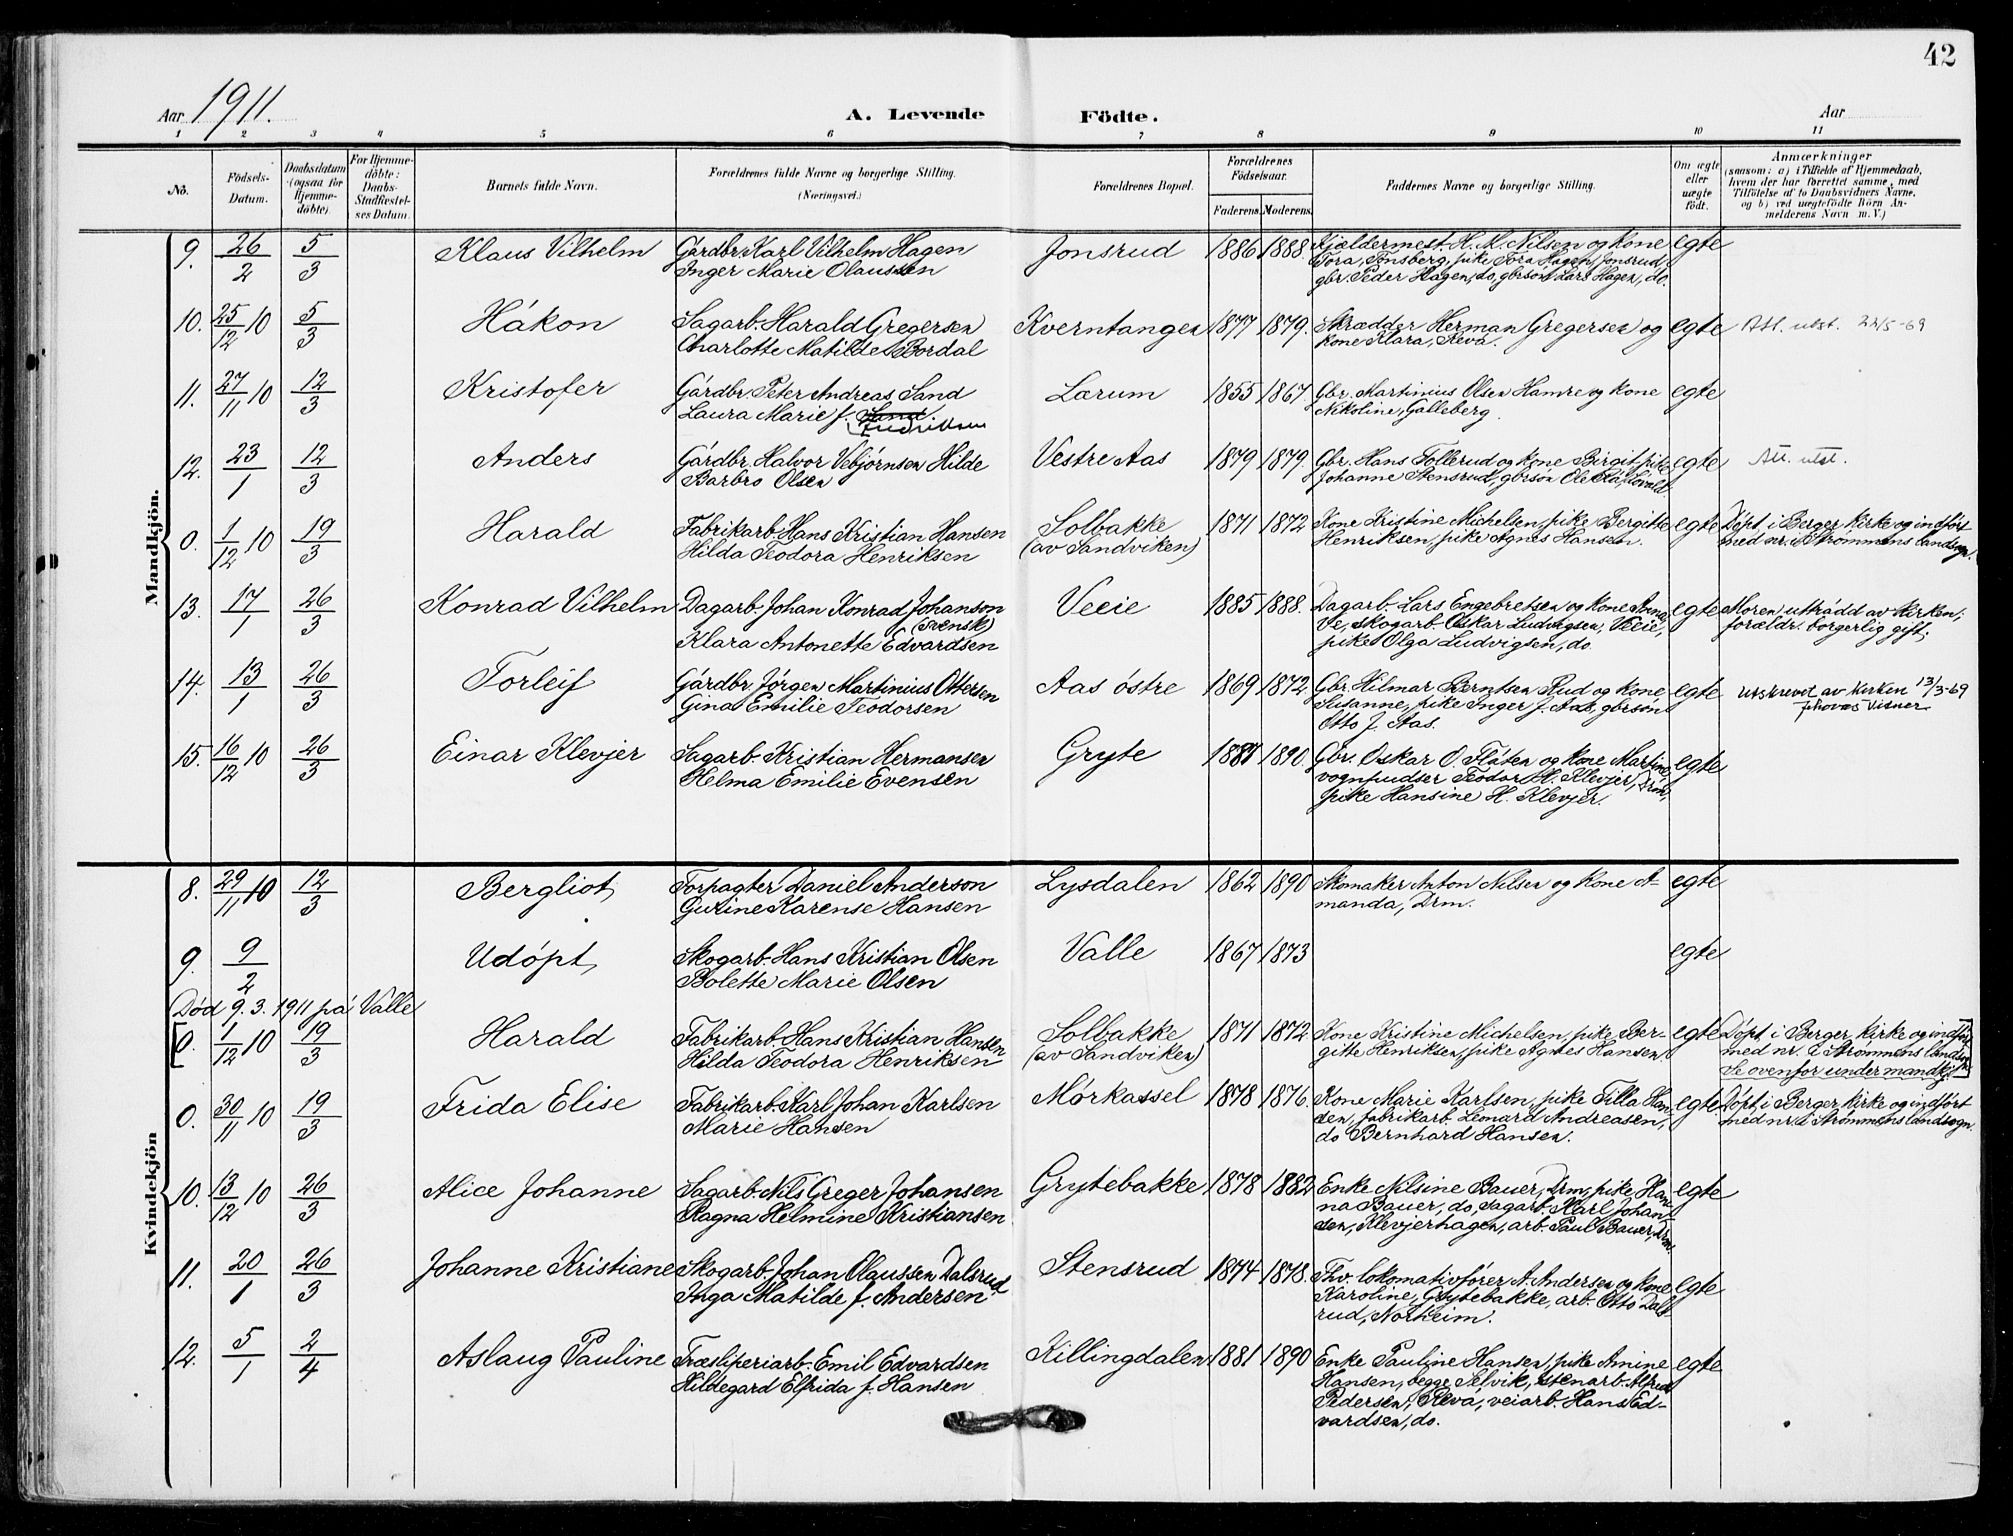 42
Aar 1911.
A. Levende Födte.
Aar
1 2 3 4 5 6 7 8 9 10 11
No.
Födsels-Datum.
Daabsdatum (ogsaa for Hjemme-døbte).
For Hjemme-døbte: Daabs-Stadfæstel-ses Datum.
Barnets fulde Navn.
Forældrenes fulde Navne og borgerlige Stilling. (Næringsvei.)
Forældrenes Bopæl.
Forældrenes Födselsaar.
Faderens. Moderens.
Faddernes Navne og borgerlige Stilling.
Om ægte eller uægte födt.
Anmærkninger
(saasom: a) i Tilfælde af Hjemmedaab,
hvem der har forrettet samme, med
Tilföielse af to Daabsvidners Navne,
og b) ved uægtefödte Börn An-
melderens Navn m. V.)
Mandkjön.
9. 26/2 5/3 Klaus Vilhelm Gårdbr. Karl Vilhelm Hagen Jonsrud 1886 1888. Kjældermest. H. M. Nilsen og kone egte
Inger Marie Olaussen Tora, Tønsberg, pike Tora Hagen, Jonsrud,
gbr. Peder Hagen, do, gbrsøn Lars Hagen, do.
10. 25/12 10 5/3 Håkon Sagarb. Harald Gregersen Kverntangen 1877 1879. Skrædder Herman Gregersen og egte Att. utst. 22/5-69
Charlotte Matilde Bordal kone Klara, Revå.
11. 27/11 10 12/3 Kristofer Gårdbr. Peter Andreas Sand Lærum 1855 1867. Gbr. Martinius Olsen Hamre og kone egte
Laura Marie f. Sand Nikoline, Galleberg.
Fredriksen
12. 23/1 12/3 Anders Gårdbr. Halvor Vebjørnsen Hilde Vestre Aas 1879 1879. Gbr. Hans Tollerud og kone Birgit, pike egte Att. utst.
Barbro Olsen Johanne Stensrud, gbrsøn Ole
0. 1/12 10 19/3 Harald Fabrikarb. Hans Kristian Hansen Solbakke 1871 1872 Kone Kristine Michelsen, pike Bergitte egte Døpt i Berger kirke og indført
Hilda Teodora Henriksen (av Sandviken) Henriksen, pike Agnes Hansen. med nr. i Strømmens landsogn.
13. 17/1 26/3 Konrad Vilhelm Dagarb. Johan Konrad Johanson Veeie 1885 1888. Dagarb. Lars Engebretsen og kone Anna, egte Moren uttrådd av kirken;
(svensk) Ve, skogarb. Oskar Ludvigsen, Veeie, forældr. borgerlig gift;
Klara Antonette Edvardsen pike Olga Ludvigsen, do.
14. 13/1 26/3 Torleif Gårdbr. Jørgen Martinius Ottersen Aas østre 1869 1872. Gbr. Hilmar Berntsen Rud og kone egte Utskrevet av kirken 13/3-69
Gina Emilie Teodorsen Susanne, pike Inger J. Aas, gbrsøn Jehovas Vitner
Otto J. Aas.
15. 16/12 10 26/3 Einar Klevjer Sagarb. Kristian Hermansen Gryte 1887 1890. Gbr. Oskar O. Flåten og kone Martine, egte
Helma Emilie Evensen vognpudser Teodor H. Klevjer, Drm,
pike Hansine H. Klevjer.
Kvindekjön
8. 29/11 10 12/3 Bergliot Forpagter Daniel Anderson Lysdalen 1862 1890 Skomaker Anton Nilsen og kone A- egte
Gurine Karense Hansen manda, Drm.
9. 9/2 Udøpt Skogarb. Hans Kristian Olsen Valle 1867 1873 egte
Bolette Marie Olsen
Død 9. 3. 1911 på Valle
[0. 1/12 10 19/3 Harald Fabrikarb. Hans Kristian Hansen Solbakke 1871 1872 Kone Kristine Michelsen, pike Ber- egte Døpt i Berger kirke og indført
Hilda Teodora Henriksen (av Sandviken) gitte Henriksen, pike Agnes Hansen. med nr. i Strømmens landsogn
Se ovenfor under mandkj.]
0. 30/11 10 19/3 Frida Elise Fabrikarb. Karl Johan Karlsen Mørkassel 1878 1876. Kone Marie Karlsen, pike Tilla Han- egte Døpt i Berger kirke og indført
Marie Hansen sen, fabrikarb. Lenard Andreasen, med nr. i Strømmens landsogn.
do Bernhard Hansen.
10. 13/12 10 26/3 Alice Johanne Sagarb. Nils Greger Johansen Grytebakke 1878 1882 Enke Nilsine Bauer, Drm, pike Han- egte
Ragna Helmine Kristiansen na Bauer, do, sagarb. Karl Johan-
sen, Klevjerhagen, arb. Paul Bauer, Drm.
11. 20/1 26/3 Johanne Kristiane Skogarb. Johan Olaussen Dalsrud Stensrud 1874 1878. Fhv. lokomativfører A. Andersen og kone egte
Inga Matilde f. Andersen Karoline, Grytebakke, arb. Otto Dals-
rud, Norheim.
12. 5/1 2/4 Aslaug Pauline Træsliperiarb. Emil Edvardsen Killingdalen 1881 1890 Enke Pauline Hansen, pike Amine egte
Hildegard Elfrida f. Hansen Hansen, begge Selvik, stenarb. Alfred
Pedersen, Revå, veiarb. Hans Ed-
vardsen, do.